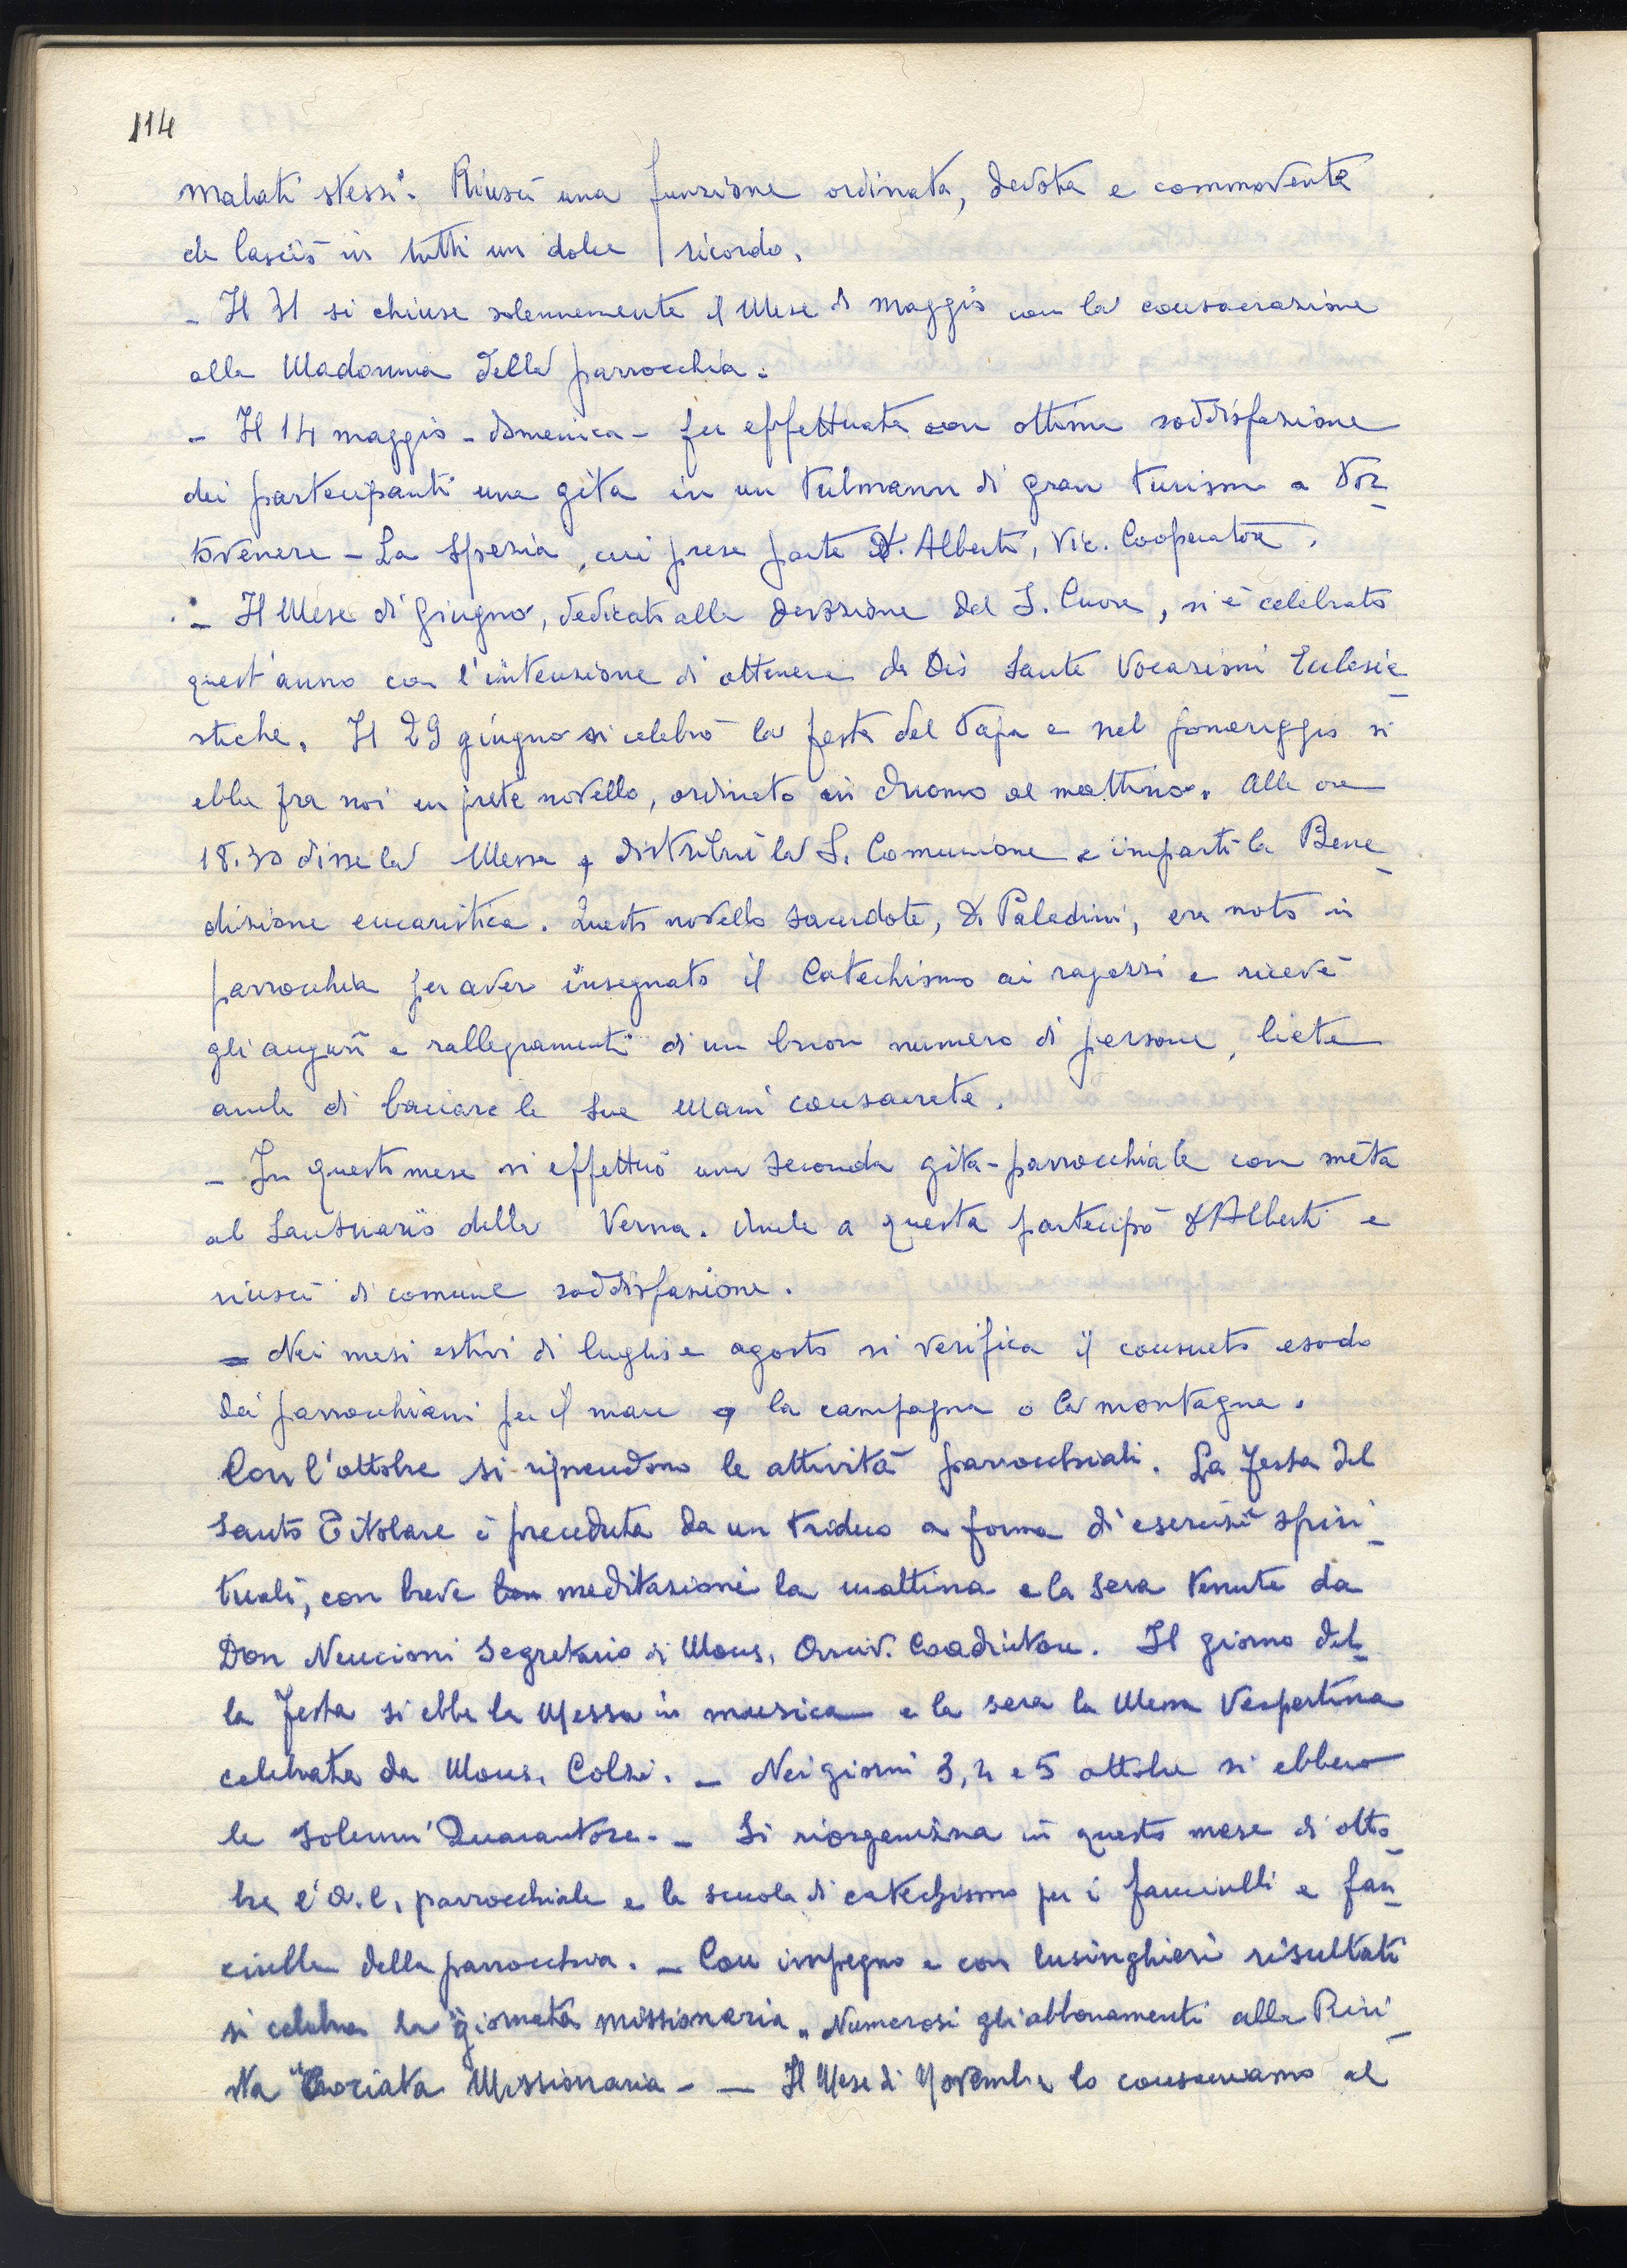 114
malati stessi. Riuscì una funzione ordinata, devota e commovente
che lasciò in tutti un dolce ricordo.
- Il 31 si chiuse solennemente il Mese di Maggio con la consacrazione
alla Madonna della parrocchia.
- Il 14 maggio - domenica - fu effettuata con ottima soddisfazione
dei partecipanti una gita in un Pulmann di gran turismo a Por-
tovenere - La Spezia, cui prese parte D. Alberti, Vic. Cooperatore.
- Il Mese di Giugno, dedicato alla devozione del S. Cuore, si è celebrato
quest'anno con l'intenzione di ottenere da Dio Sante Vocazioni Ecclesia-
stiche. Il 29 giugno si celebrò la festa del Papa e nel pomeriggio si
ebbe fra noi un prete novello, ordinato in duomo al mattino. Alle ore
18.30 disse la Messa, distribuì la S. Comunione e impartì la Bene-
dizione eucaristica. Questo novello sacerdote, D. Paladini, era noto in
parrocchia per aver insegnato il Catechismo ai ragazzi e ricevè
gli auguri e rallegramenti di un buon numero di persone, liete
anche di baciare le sue mani consacrate.
- In questo mese si effettuò una seconda gita-parrocchiale con mèta
al Santuario della Verna. Anche a questa partecipò D. Alberti e
riuscì di comune soddisfazione.
- Nei mesi estivi di luglio e agosto si verifica il consueto esodo
dei parrocchiani per il mare o la campagna o la montagna.
Con l'ottobre si riprendono le attività parrocchiali. La Festa del
Santo Titolare è preceduta da un triduo a forma di esercizi spiri-
tuali, con breve meditazioni la mattina e la sera tenute da
Don Nencioni Segretario di Mons. Arciv. Coadiutore. Il giorno del-
la Festa si ebbe la Messa in musica e la sera la Messa Vespertina
celebrata da Mons. Colzi. - Nei giorni 3, 4 e 5 ottobre si ebbero
le solenni Quarantore. - Si riorganizza in questo mese di otto-
bre l'A.C. parrocchiale e la scuola di catechismo per i fanciulli e fan-
ciulle della parrocchia. - Con impegno e con lusinghieri risultati
si celebra la giornata missionaria. Numerosi gli abbonamenti alla Rivi-
sta "Crociata Missionaria - - Il Mese di Novembre lo consacriamo al